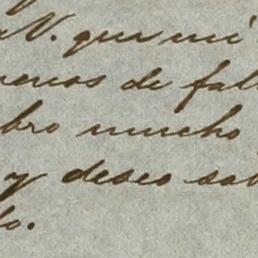 V. que mi
menos de fal
bro mucho
y deseo sab
lo.